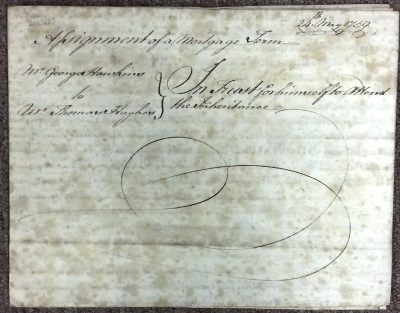 24th May 1759
Assignment of a Mortgage Term
Mr. George Hawkins
to
Mr. Thomas Hughes
In Trust for himself to Attend
the Inheritance